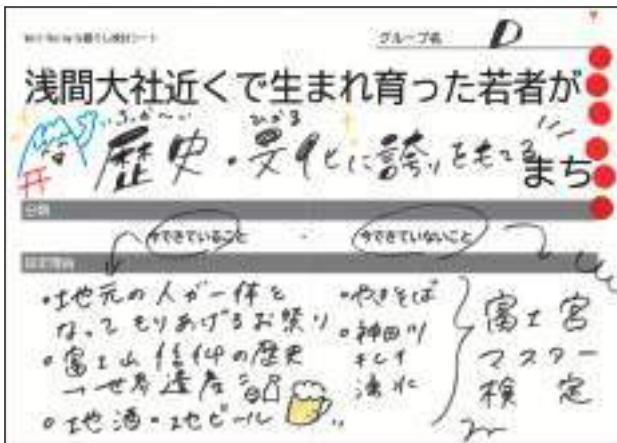 グループ名 D
浅間大社近くで生まれ育った若者が
歴史・文化に誇りをもてる
まち
分類
今できていること ・ 今できていないこと
設定理由
・地元の人が一体と
なってもりあげるお祭り
・富士山信仰の歴史
→世界遺産
・地酒・地ビール
・やきそば
・神田川
キレイ
湧水
富士宮
マスター
検定